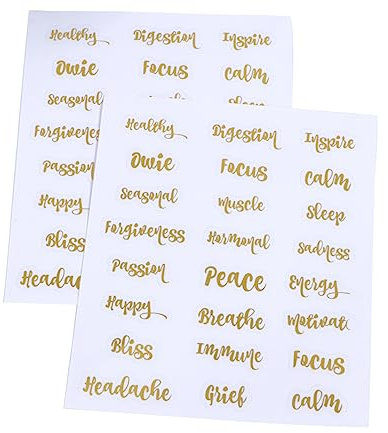 Healthy Digestion Inspire
Owie Focus Calm
Seasonal
Forgiveness
Passion
Happy
Bliss
Headache
Healthy Digestion Inspire
Owie Focus Calm
Seasonal Muscle Sleep
Forgiveness Hormonal Sadness
Passion Peace Energy
Happy Breathe Motivate
Bliss Immune Focus
Headache Grief Calm